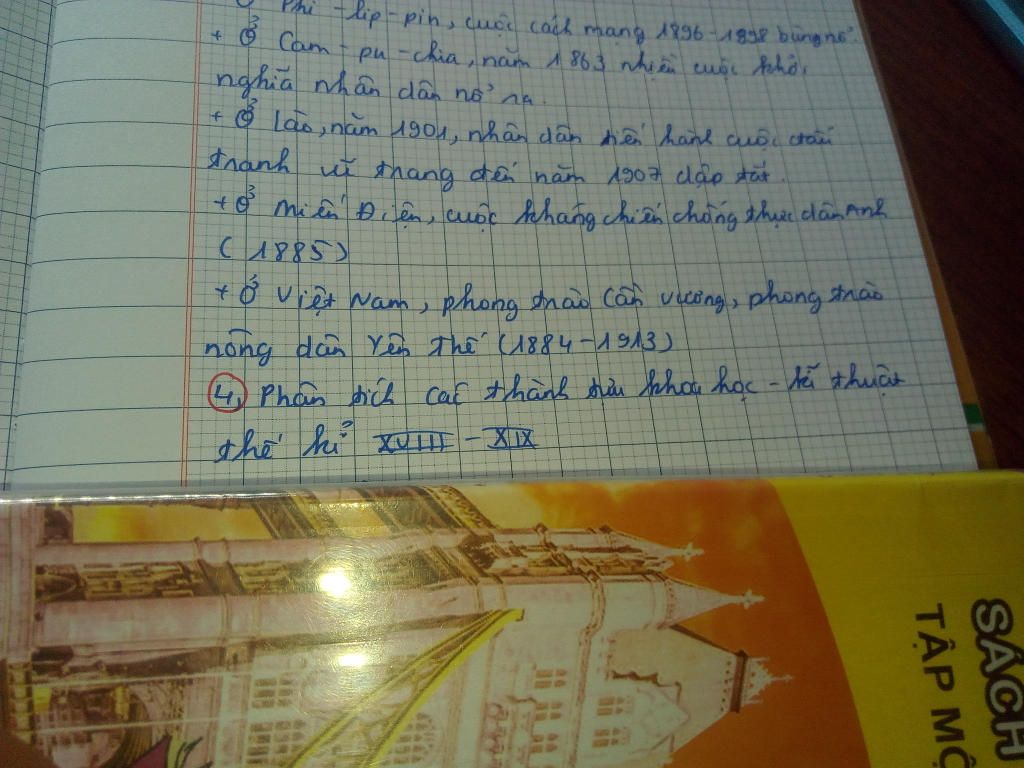 Ở Phi-lip-pin, cuộc cách mạng 1896-1898 bùng nổ.
+ Ở Cam-pu-chia, năm 1863 nhiều cuộc khởi
nghĩa nhân dân nổ ra.
+ Ở Lào, năm 1901, nhân dân tiến hành cuộc đấu
tranh vũ trang đến năm 1907 dập tắt.
+ Ở Miến Điện, cuộc kháng chiến chống thực dân Anh
(1885)
+ Ở Việt Nam, phong trào Cần Vương, phong trào
nông dân Yên Thế (1884-1913)
4, Phân tích các thành tựu khoa học - kĩ thuật
thế kỉ XVIII - XIX
SÁCH
TẬP MỘ